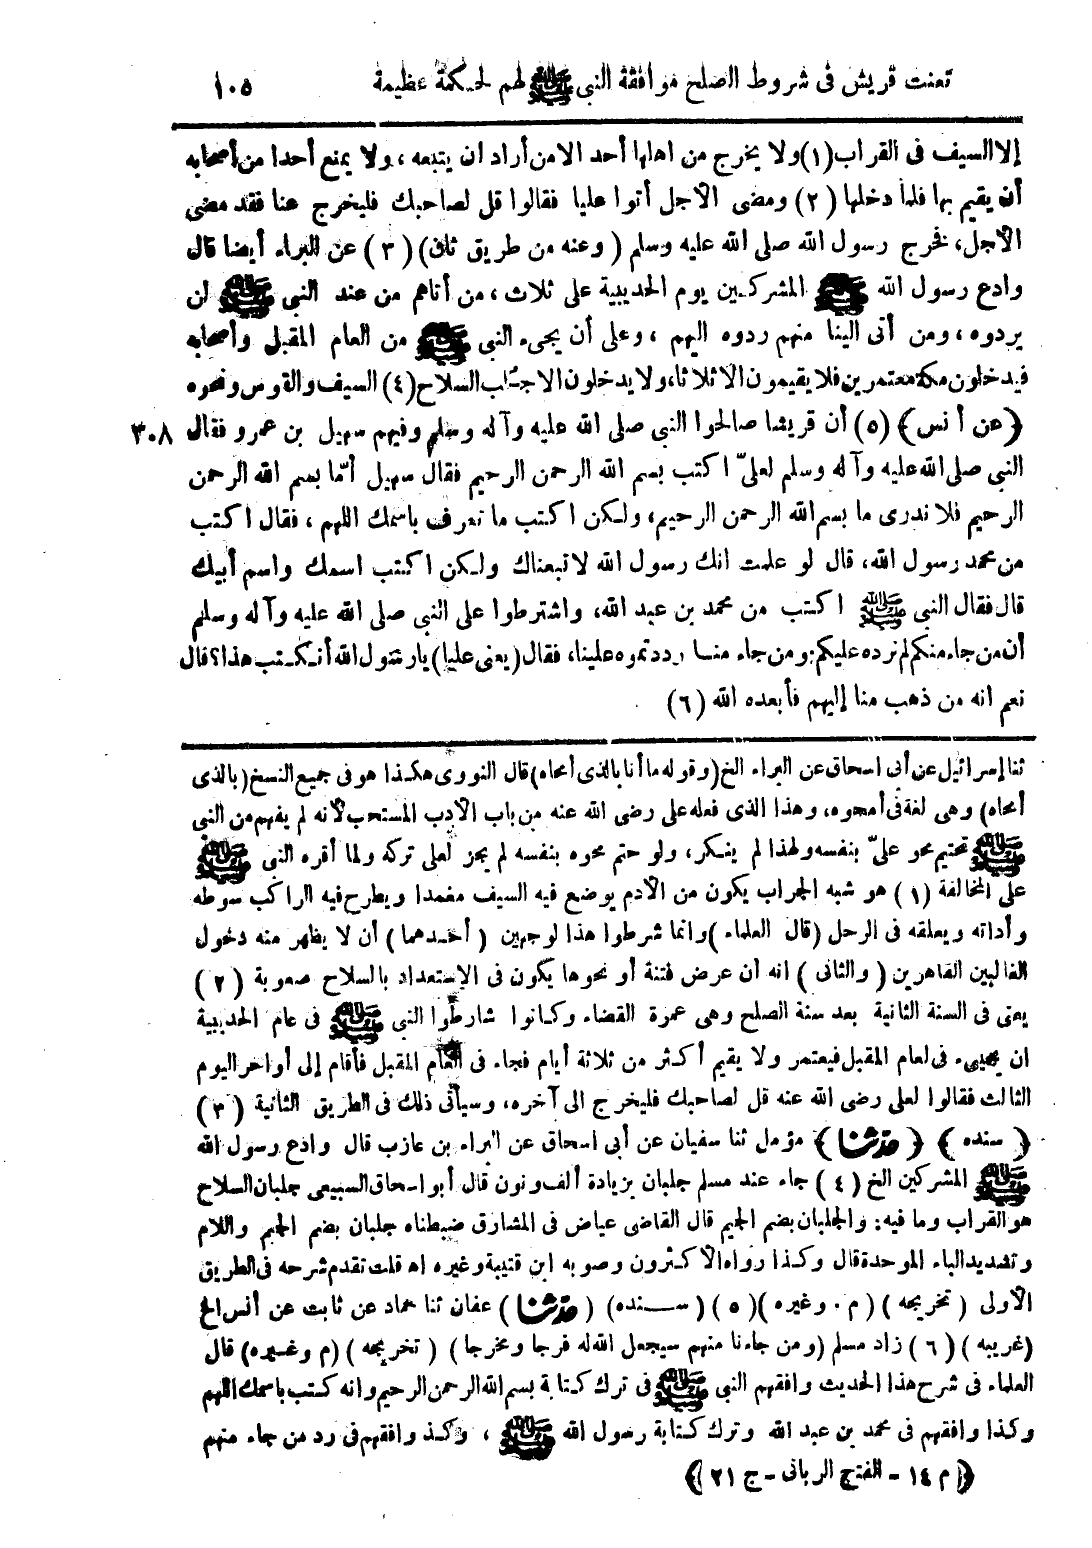 تعنت قريش فى شروط الصلح موافقة النبى ﷺ لهم لحكمة عظيمة ١٠٥
إلا السيف فى القراب (١) ولا يخرج من اهلها أحد الا من أراد ان يتبعه، ولا يمنع أحدا من أصحابه
أن يقيم بها فلما دخلها (٢) ومضى الأجل أتوا عليا فقالوا قل لصاحبك فليخرج عنا فقد مضى
الأجل، فخرج رسول الله صلى الله عليه وسلم (وعنه من طريق ثان) (٣) عن البراء أيضا قال
وادع رسول الله ﷺ المشركين يوم الحديبية على ثلاث، من أتاهم من عند النبى ﷺ لن
يردوه، ومن أتى الينا منهم ردوه اليهم، وعلى أن يجىء النبى ﷺ من العام المقبل وأصحابه
فيدخلون مكة معتمرين فلا يقيمون الا ثلاثا، ولا يدخلون الا جلب السلاح (٤) السيف والقوس ونحوه
﴿عن أنس﴾ (٥) أن قريشا صالحوا النبى صلى الله عليه وآله وسلم وفيهم سهيل بن عمرو فقال ٣٠٨
النبى صلى الله عليه وآله وسلم لعلىّ اكتب بسم الله الرحمن الرحيم فقال سهيل أمّا بسم الله الرحمن
الرحيم فلا ندرى ما بسم الله الرحمن الرحيم، ولكن اكتب ما نعرف باسمك اللهم، فقال اكتب
من محمد رسول الله، قال لو علمت انك رسول الله لاتبعناك ولكن اكتب اسمك واسم أبيك
قال فقال النبى ﷺ اكتب من محمد بن عبد الله، واشترطوا على النبى صلى الله عليه وآله وسلم
أن من جاء منكم لم نرده عليكم: ومن جاء منا رددتموه علينا، فقال (يعنى عليا) يارسول الله أنكتب هذا؟ قال
نعم انه من ذهب منا إليهم فأبعده الله (٦)
ثنا إسرائيل عن أبى اسحاق عن البراء الخ (وقوله ما أنا بالذى أمحاه) قال النووى هكذا هو فى جميع النسخ (بالذى
أمحاه) وهى لغة فى أمحوه، وهذا الذى فعله على رضى الله عنه من باب الأدب المستحب لأنه لم يفهم من النبى
ﷺ تحتيم محو علىّ بنفسه ولهذا لم ينكر، ولو حتم محوه بنفسه لم يجز لعلى تركه ولما أقره النبى ﷺ
على المخالفة (١) هو شبه الجراب يكون من الأدم يوضع فيه السيف مغمدا ويطرح فيه الراكب سوطه
وأداته ويعلقه فى الرحل (قال العلماء) وانما شرطوا هذا لوجهين (أحدهما) أن لا يظهر منه دخول
الغالبين القاهرين (والثانى) انه أن عرض فتنة أو نحوها يكون فى الاستعداد بالسلاح صعوبة (٢)
يعنى فى السنة الثانية بعد سنة الصلح وهى عمرة القضاء وكانوا شارطوا النبى ﷺ فى عام الحديبية
ان يجىء فى لعام المقبل فيعتمر ولا يقيم أكثر من ثلاثة أيام فجاء فى العام المقبل فأقام إلى أواخر اليوم
الثالث فقالوا لعلى رضى الله عنه قل لصاحبك فليخرج الى آخره، وسيأتى ذلك فى الطريق الثانية (٣)
﴿سنده﴾ ﴿حدثنا﴾ مؤمل ثنا سفيان عن أبى اسحاق عن البراء بن عازب قال وادع رسول الله
ﷺ المشركين الخ (٤) جاء عند مسلم جلبان بزيادة ألف ونون قال أبو اسحاق السبيعى جلبان السلاح
هو القراب وما فيه: والجلبان بضم الجيم قال القاضى عياض فى المشارق ضبطناه جلبان بضم الجيم واللام
وتشديد الباء الموحدة قال وكذا رواه الأكثرون وصوبه ابن قتيبة وغيره اه قلت تقدم شرحه فى الطريق
الأولى (تخريجه) (م. وغيره) (٥) (سنده) (حدثنا) عفان ثنا حماد عن ثابت عن أنس الخ
(غريبه) (٦) زاد مسلم (ومن جاءنا منهم سيجعل الله له فرجا ومخرجا) (تخريجه) (م وغيره) قال
العلماء فى شرح هذا الحديث وافقهم النبى ﷺ فى ترك كتابة بسم الله الرحمن الرحيم وانه كتب باسمك اللهم
وكذا وافقهم فى محمد بن عبد الله وترك كتابة رسول الله ﷺ، وكذ وافقهم فى رد من جاء منهم
﴿م ١٤ - الفتح الربانى - ج ٢١﴾